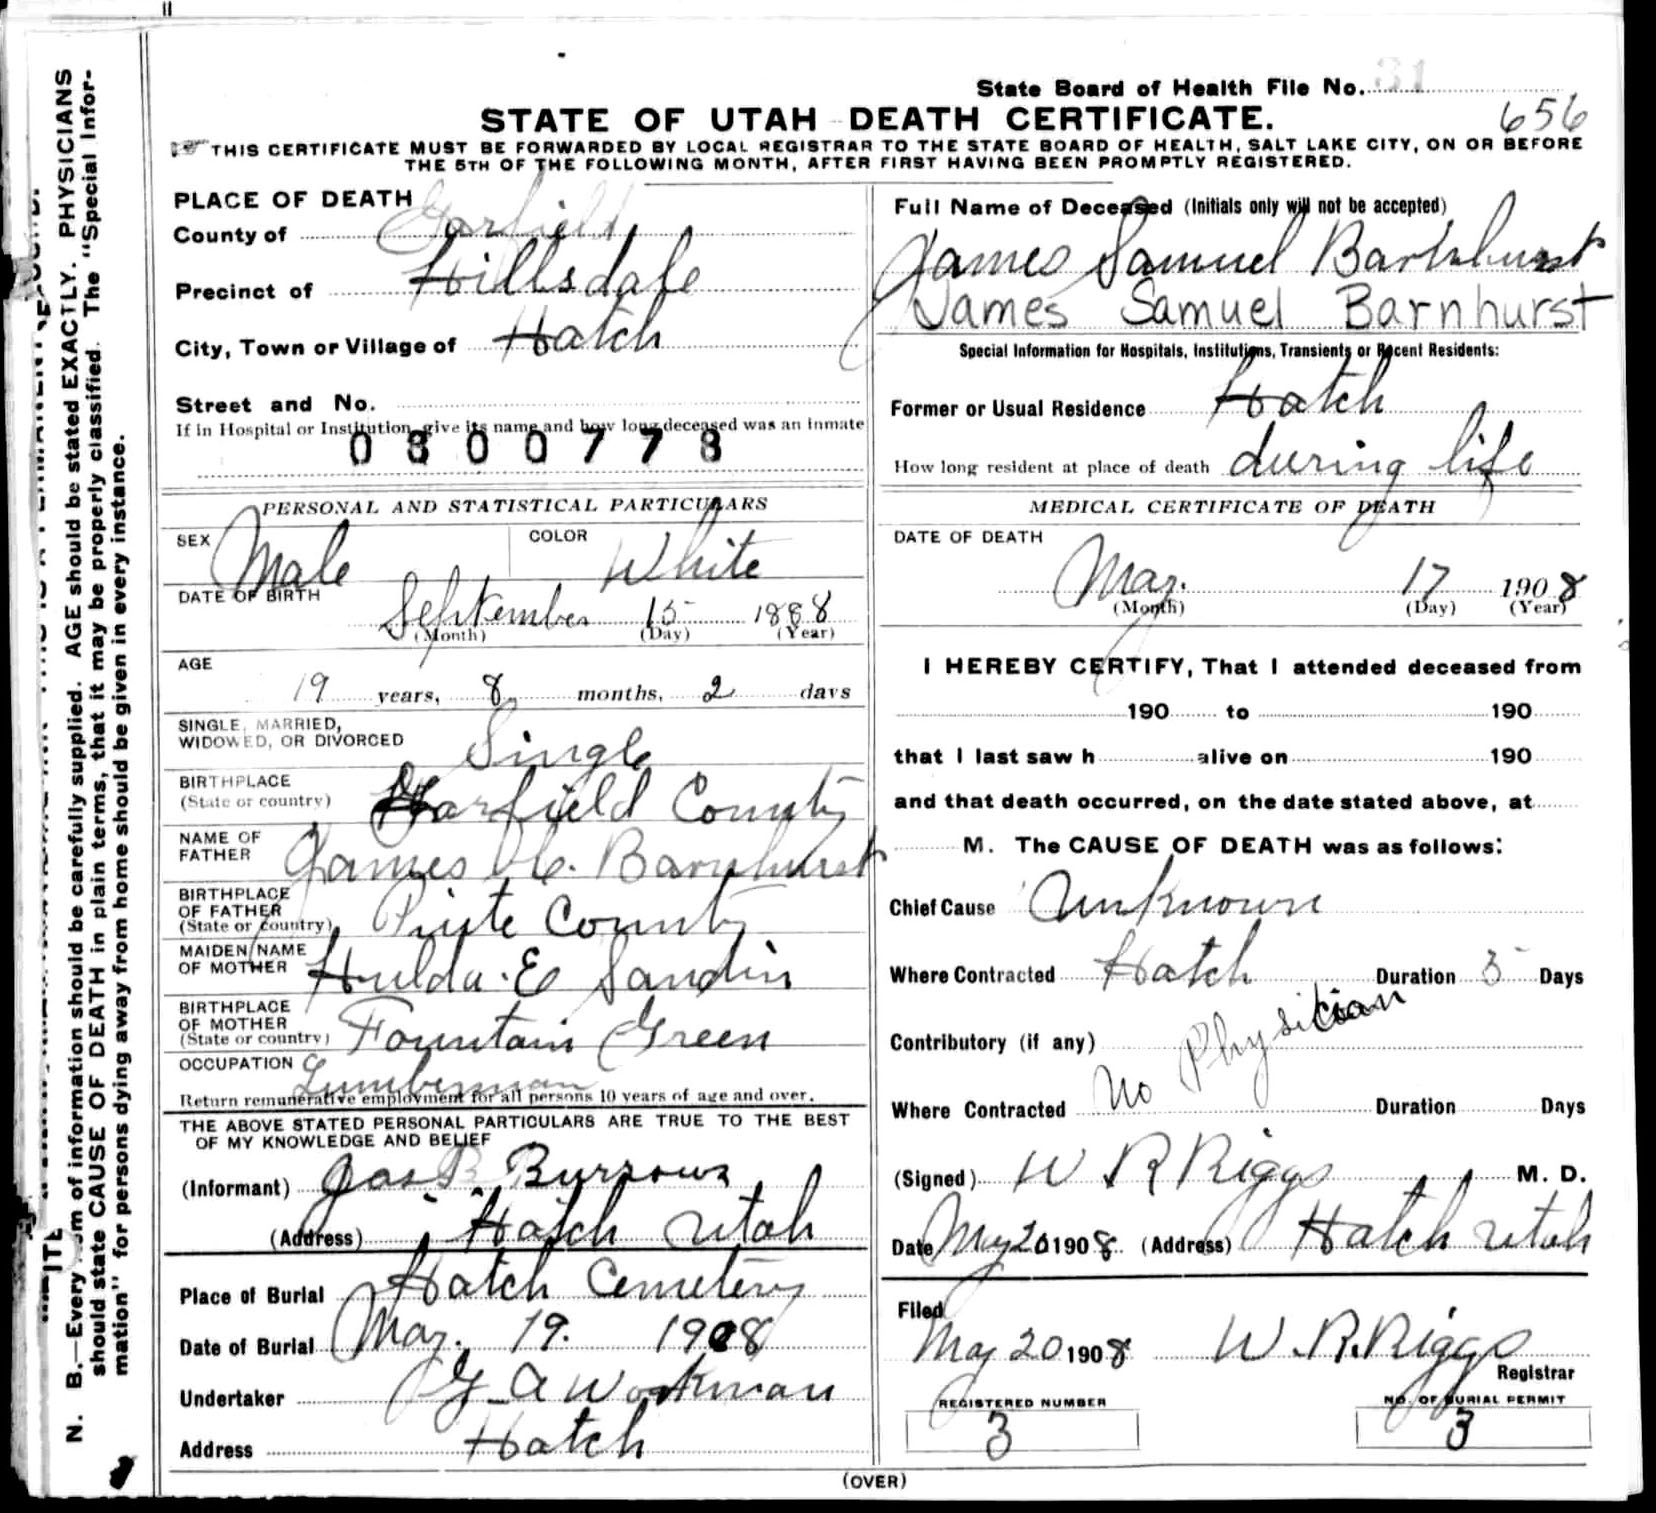 State Board of Health File No. 31
STATE OF UTAH DEATH CERTIFICATE.
656
THIS CERTIFICATE MUST BE FORWARDED BY LOCAL REGISTRAR TO THE STATE BOARD OF HEALTH, SALT LAKE CITY, ON OR BEFORE
THE 5TH OF THE FOLLOWING MONTH, AFTER FIRST HAVING BEEN PROMPTLY REGISTERED.
PLACE OF DEATH
County of Garfield
Precinct of Hillsdale
City, Town or Village of Hatch
Street and No.
If in Hospital or Institution, give its name and how long deceased was an inmate
0800778
PERSONAL AND STATISTICAL PARTICULARS
SEX Male COLOR White
DATE OF BIRTH
September 15 1888
(Month) (Day) (Year)
AGE
19 years, 8 months, 2 days
SINGLE, MARRIED,
WIDOWED, OR DIVORCED Single
BIRTHPLACE
(State or country) Garfield County
NAME OF
FATHER James C. Barnhurst
BIRTHPLACE
OF FATHER
(State or country) Piute County
MAIDEN NAME
OF MOTHER Hulda E Sandin
BIRTHPLACE
OF MOTHER
(State or country) Fountain Green
OCCUPATION Lumberman
Return remunerative employment for all persons 10 years of age and over.
THE ABOVE STATED PERSONAL PARTICULARS ARE TRUE TO THE BEST
OF MY KNOWLEDGE AND BELIEF
(Informant) Jas B Burrows
(Address) Hatch Utah
Place of Burial Hatch Cemetery
Date of Burial May. 19. 1908
Undertaker G A Workman
Address Hatch
Full Name of Deceased (Initials only will not be accepted)
James Samuel Barnhurst
James Samuel Barnhurst
Special Information for Hospitals, Institutions, Transients or Recent Residents:
Former or Usual Residence Hatch
How long resident at place of death during life
MEDICAL CERTIFICATE OF DEATH
DATE OF DEATH
May. 17 1908
(Month) (Day) (Year)
I HEREBY CERTIFY, That I attended deceased from
190 to 190
that I last saw h alive on 190
and that death occurred, on the date stated above, at
M. The CAUSE OF DEATH was as follows:
Chief Cause Unknown
Where Contracted Hatch Duration 5 Days
Contributory (if any)
No Physician
Where Contracted Duration Days
(Signed) W R Riggs M. D.
Date May 20 1908 (Address) Hatch Utah
Filed
May 20 1908 W. R. Riggs
Registrar
REGISTERED NUMBER
3
NO. OF BURIAL PERMIT
3
(OVER)
N. B.—Every item of information should be carefully supplied. AGE should be stated EXACTLY. PHYSICIANS
should state CAUSE OF DEATH in plain terms, that it may be properly classified. The "Special Infor-
mation" for persons dying away from home should be given in every instance.